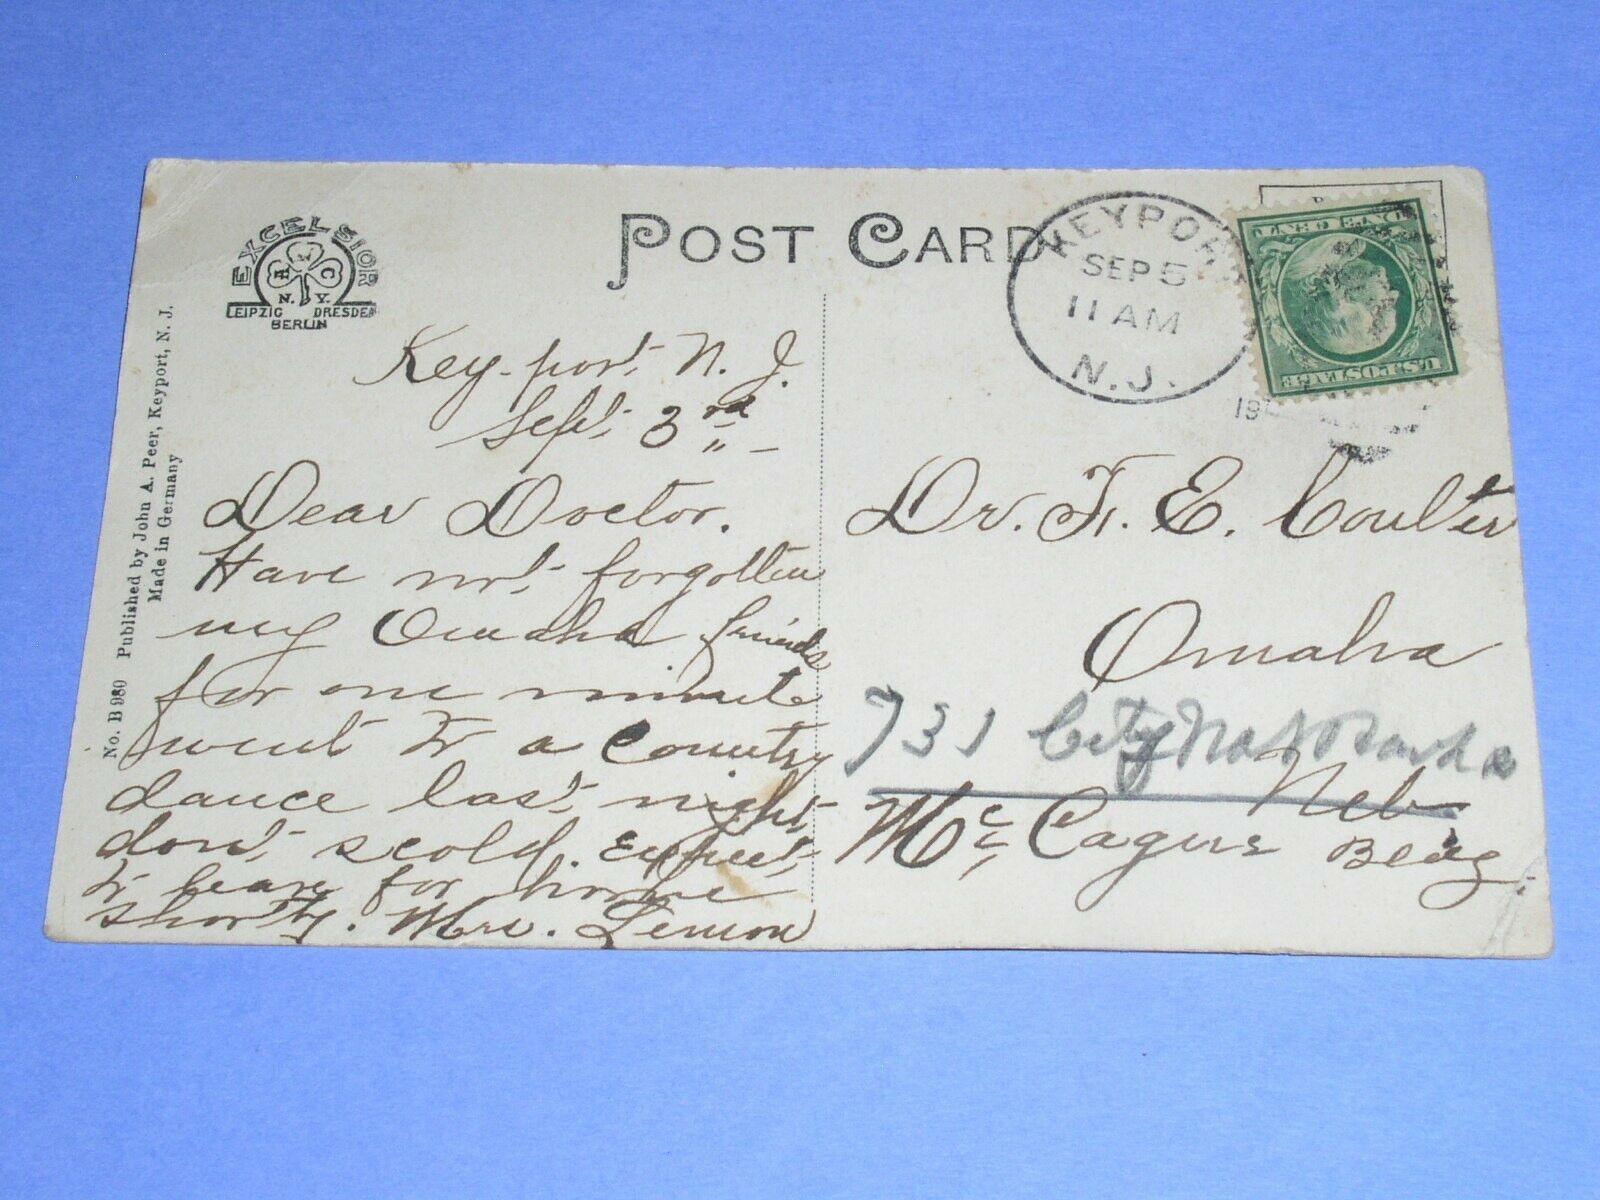 POST CARD
EXCELSIOR
A C
N. Y.
LEIPZIG DRESDEN
BERLIN
No. B 980 Published by John A. Peer, Keyport, N. J.
Made in Germany
KEYPORT
SEP 5
11 AM
N.J.
19
U.S. POSTAGE
ONE CENT
Key-port N. J.
Sept. 3rd
Dear Doctor.
Have not forgotten
my Omaha friends
for one minute
went to a Country
dance last night,
don't scold. Expect
to leave for home
shortly. Mrs. Lemon
Dr. F. E. Coulter
Omaha
731 City Nat Bank
Neb
Mc Cagues Bldg.